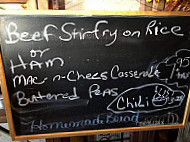 Beef Stirfry on Rice
or
HAM
Mac-n-Chees Casserole
Buttered Peas
Chili
Homemade Bread